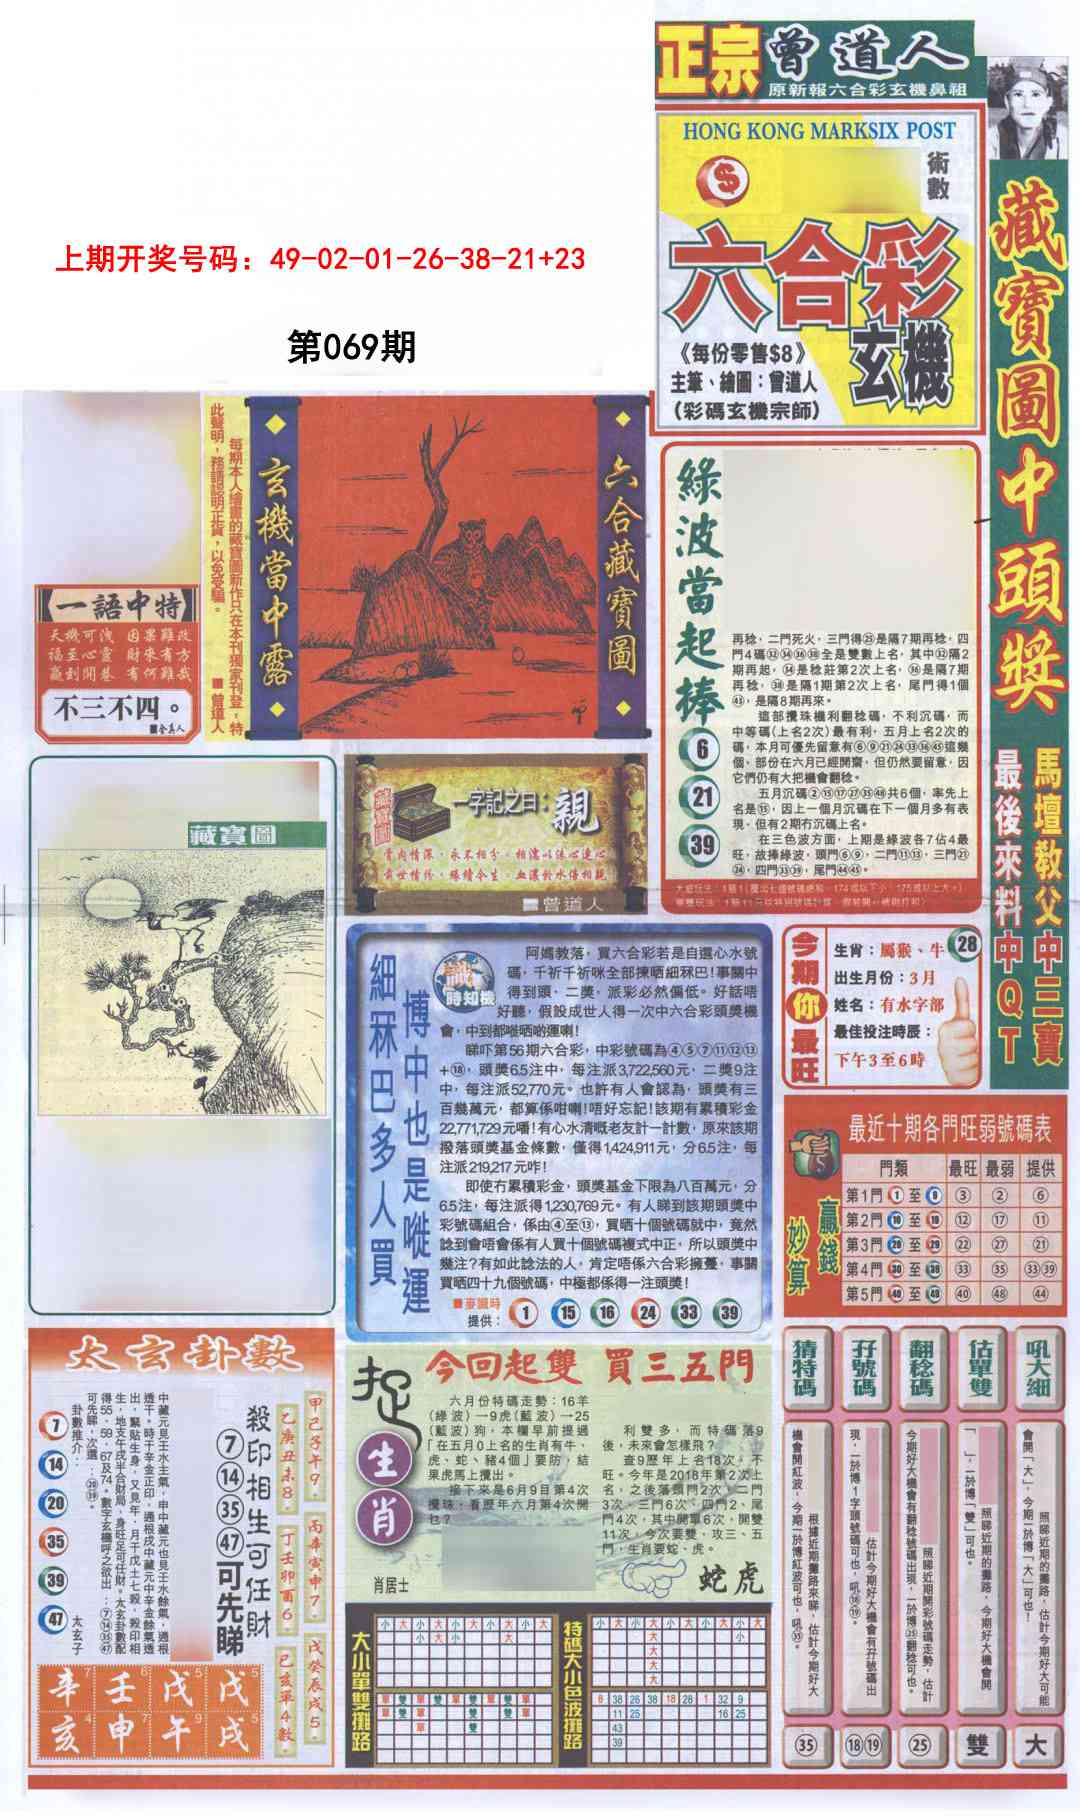 上期开奖号码：49-02-01-26-38-21+23
第069期
正宗曾道人
原新報六合彩玄機鼻祖
HONG KONG MARKSIX POST
術數
六合彩
玄機
《每份零售$8》
主筆、繪圖：曾道人
（彩碼玄機宗師）
藏寶圖中頭獎
馬壇教父中三寶
最後來料中QT
每期本人繪畫的藏寶圖新作只在本刊獨家刊登，特
此聲明，務請認明正貨，以免受騙。
■曾道人
玄機當中露
六合藏寶圖
一語中特
天機可洩 因果難改
福至心靈 財來有方
贏到開巷 有何難哉
不三不四。
藏寶圖
藏寶圖
一字記之曰：親
骨肉情深，永不相分，相濡以沫心連心
前世情份，緣續今生，血濃於水倍相親
■曾道人
綠波當起捧
6
21
39
再稔，二門死火，三門得㉕是隔7期再稔，四
門4碼㉜㉞㊱㊳全是雙數上名，其中㉜隔2
期再起，㉞是稔莊第2次上名，㊱是隔7期
再稔，㊳是隔1期第2次上名，尾門得1個
㊸，是隔8期再來。
這部攪珠機利翻稔碼，不利沉碼，而
中等碼(上名2次)最有利，五月上名2次的
碼，本月可優先留意有⑥⑨㉑㉔㉝㊱㊺這幾
個，部份在六月已經開齋，但仍然要留意，因
它們仍有大把機會翻稔。
五月沉碼②⑮⑰㉗㉟㊽共6個，率先上
名是⑮，因上一個月沉碼在下一個月多有表
現，但有2期冇沉碼上名。
在三色波方面，上期是綠波各7佔4最
旺，故捧綠波，頭門⑥⑨，二門⑪⑬，三門㉑
㉔，四門㉝㊴，尾門㊹㊺。
今期你最旺
生肖：屬猴、牛
28
出生月份：3月
姓名：有水字部
最佳投注時辰：
下午3至6時
細冧巴多人買
博中也是嘥運
識時知機
阿媽教落，買六合彩若是自選心水號
碼，千祈千祈咪全部揀晒細冧巴！事關中
得到頭，二獎，派彩必然偏低。好話唔
好聽，假設成世人得一次中六合彩頭獎機
會，中到都嘥晒啲運喇！
睇吓第56期六合彩，中彩號碼為④⑤⑦⑪⑫⑬
+⑱，頭獎6.5注中，每注派3,722,560元，二獎9注
中，每注派52,770元。也許有人會認為，頭獎有三
百幾萬元，都算係咁喇！唔好忘記！該期有累積彩金
22,771,729元噃！有心水清嘅老友計一計數，原來該期
撥落頭獎基金條數，僅得1,424,911元，分6.5注，每
注派219,217元咋！
即使冇累積彩金，頭獎基金下限為八百萬元，分
6.5注，每注派得1,230,769元。有人睇到該期頭獎中
彩號碼組合，係由④至⑬，買晒十個號碼就中，竟然
諗到會唔會係有人買十個號碼複式中正，所以頭獎中
幾注？有如此諗法的人，肯定唔係六合彩擁躉，事關
買晒四十九個號碼，中極都係得一注頭獎！
■麥識時
提供：
1 15 16 24 33 39
贏錢妙算
最近十期各門旺弱號碼表
門類 最旺 最弱 提供
第1門①至⑨ ③ ② ⑥
第2門⑩至⑲ ⑫ ⑰ ⑪
第3門⑳至㉙ ㉒ ㉗ ㉑
第4門㉚至㊴ ㉝ ㉟ ㉝㊴
第5門㊵至㊾ ㊵ ㊽ ㊹
太玄卦數
甲己子午9．
乙庚丑未8．
丙辛寅申7．
丁壬卯酉6．
戊癸辰戌5．
己亥單4數．
殺印相生可任財
⑦⑭㉟㊼可先睇
中藏元見壬水主氣，申中藏元也見壬水餘氣，通根
透干。時干辛金正印，通根戌中藏元中辛金餘氣透
出，緊貼生身，又見年，月干戊土七殺，殺印相
生，地支午戌半合財局，身旺足可任財。太玄卦數配
得55，59，67及74。數字玄機呼之欲出：⑦⑭㉟㊼
可先睇，次選：⑳㊴。
卦數推介：
太玄子
7
14
20
35
39
47
辛 壬 戊 戊
亥 申 午 戌
捉生肖
今回起雙 買三五門
六月份特碼走勢：16羊
(綠波)一9虎(藍波)一25
(藍波)狗，本欄早前提過
「在五月0上名的生肖有牛、
虎、蛇、豬4個」要防，結
果虎馬上攪出。
接下來是6月9日第4次
攪珠，看歷年六月第4次開
乜？
利雙多，而特碼落9
後，未來會怎樣飛？
查9歷年上名18次，不
旺。今年是2018年第2次上
名，之後落頭門2次、二門
3次、三門6次、四門2、尾
門4次，其中開單6次，開雙
11次。今次要雙，攻三、五
門，生肖要蛇、虎。
肖居士
蛇虎
大小單雙攤路
特碼大小色波攤路
猜特碼
根據近期攤路來睇，估計今期好大
機會開紅波，今期一於博紅波可也，吼㉟。
㉟
孖號碼
估計今期好大機會有孖號碼出
現，一於博1字頭號碼可也，吼⑱⑲。
⑱⑲
翻稔碼
照睇近期開彩號碼走勢，估計
今期好大機會有翻稔號碼出現，一於博㉕翻稔可也。
㉕
估單雙
照睇近期的攤路，今期好大機會開
「 」，一於博「雙」可也。
雙
吼大細
照睇近期的攤路，估計今期好大可能
會開「大」，今期一於博「大」可也！
大